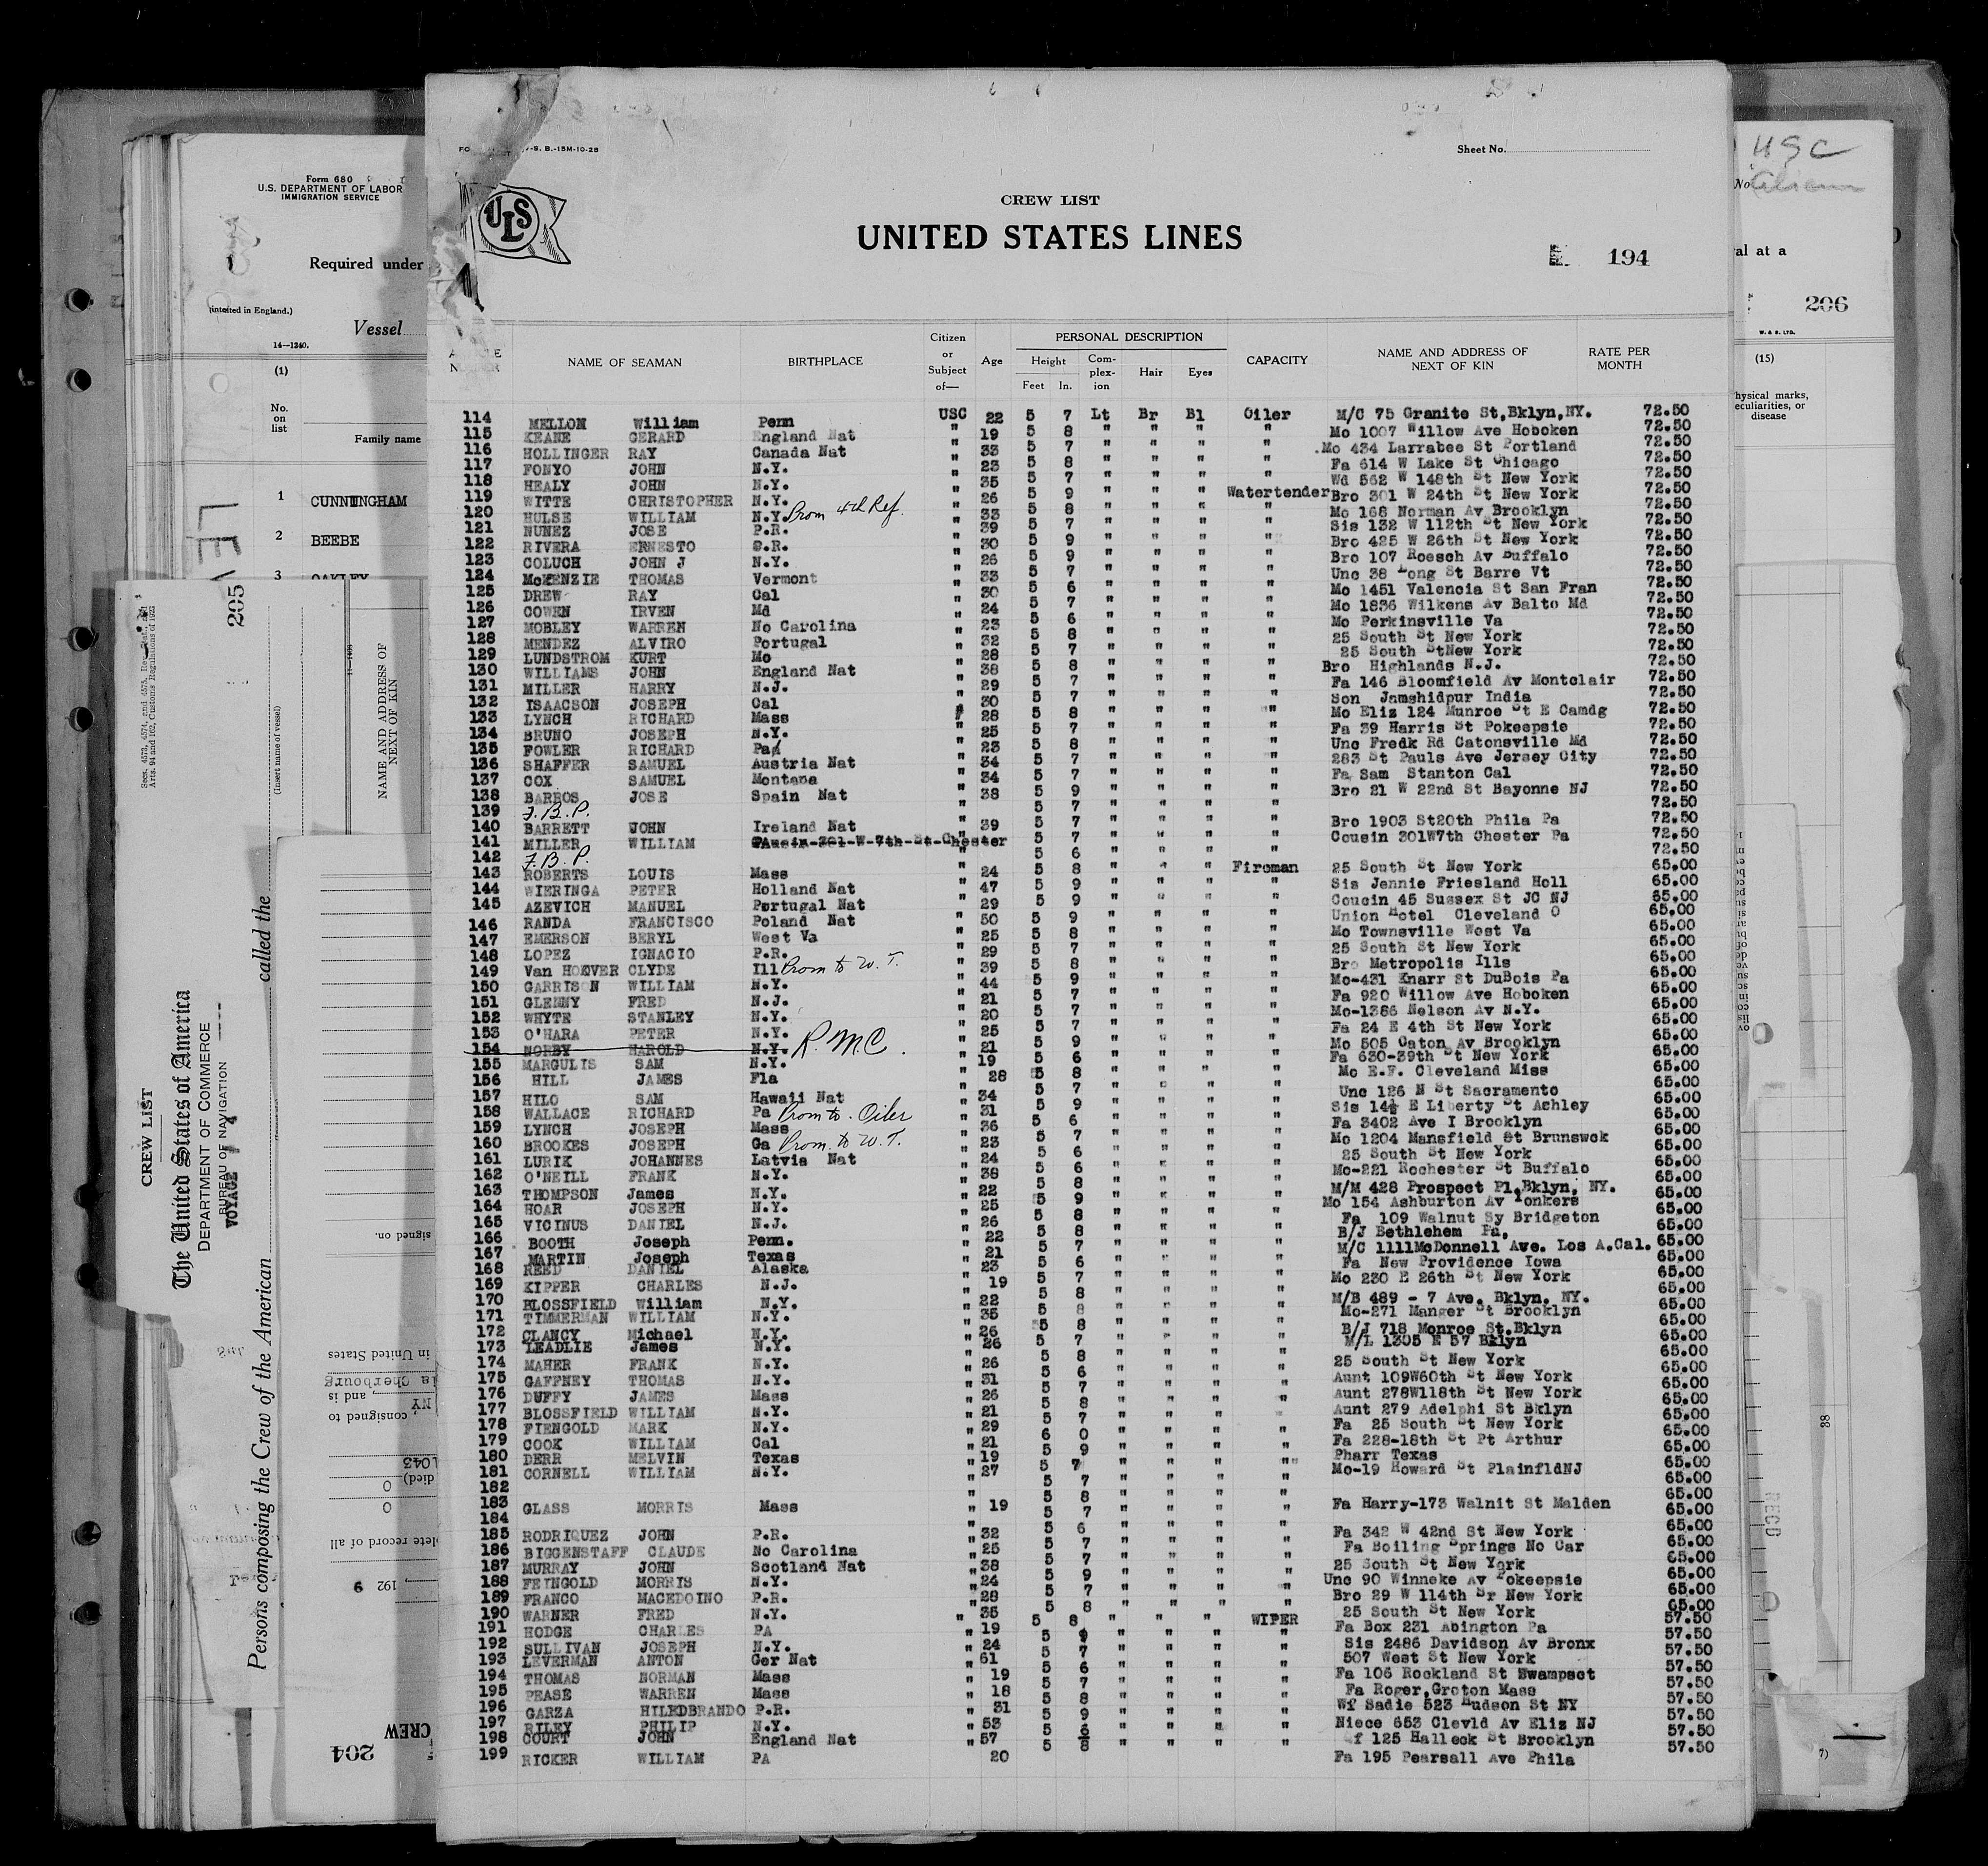 Form 680
U.S. DEPARTMENT OF LABOR
IMMIGRATION SERVICE
Required under
Vessel
14—1240.
(1)
No.
on
list
Family name
1 CUNNINGHAM
2 BEEBE
3 OAKLEY
205
CREW LIST
The United States of America
DEPARTMENT OF COMMERCE
BUREAU OF NAVIGATION
VOYAGE
(Insert name of vessel)
NAME AND ADDRESS OF
NEXT OF KIN
Persons composing the Crew of the American called the
signed on.
in United States
cherbourg
NY, and is
consigned to
192 9
CREW
204
-S. B.-15M-10-28
Sheet No.
ULS
CREW LIST
UNITED STATES LINES
194
NAME OF SEAMAN BIRTHPLACE Citizen or Subject of— Age PERSONAL DESCRIPTION CAPACITY NAME AND ADDRESS OF NEXT OF KIN RATE PER MONTH
Height Feet In. Complexion Hair Eyes
114 MELLON William Penn USC 22 5 7 Lt Br Bl Oiler M/C 75 Granite St,Bklyn,NY. 72.50
115 KEANE GERARD England Nat " 19 5 8 " " " " Mo 1007 Willow Ave Hoboken 72.50
116 HOLLINGER RAY Canada Nat " 33 5 7 " " " " .Mo 434 Larrabee St Portland 72.50
117 FONYO JOHN N.Y. " 23 5 8 " " " " Fa 614 W Lake St Chicago 72.50
118 HEALY JOHN N.Y. " 35 5 7 " " " " Wd 562 W 148th St New York 72.50
119 WITTE CHRISTOPHER N.Y. " 26 5 9 " " " Watertender Bro 301 W 24th St New York 72.50
120 HULSE WILLIAM N.Y. Prom 4th Ref. " 33 5 8 " " " " Mo 168 Norman Av Brooklyn 72.50
121 NUNEZ JOSE P.R. " 39 5 7 " " " " Sis 132 W 112th St New York 72.50
122 RIVERA ERNESTO P.R. " 30 5 9 " " " " Bro 425 W 26th St New York 72.50
123 COLUCH JOHN J N.Y. " 26 5 9 " " " " Bro 107 Roesch Av Buffalo 72.50
124 McKENZIE THOMAS Vermont " 33 5 7 " " " " Unc 38 Long St Barre Vt 72.50
125 DREW RAY Cal " 30 5 6 " " " " Mo 1451 Valencia St San Fran 72.50
126 COWEN IRVEN Md " 24 5 7 " " " " Mo 1836 Wilkens Av Balto Md 72.50
127 MOBLEY WARREN No Carolina " 23 5 6 " " " " Mo Perkinsville Va 72.50
128 MENDEZ ALVIRO Portugal " 32 5 8 " " " " 25 South St New York 72.50
129 LUNDSTROM KURT Mo " 28 5 7 " " " " 25 South StNew York 72.50
130 WILLIAMS JOHN England Nat " 38 5 8 " " " " Bro Highlands N.J. 72.50
131 MILLER HARRY N.J. " 29 5 7 " " " " Fa 146 Bloomfield Av Montclair 72.50
132 ISAACSON JOSEPH Cal " 30 5 7 " " " " Son Jamshidpur India 72.50
133 LYNCH RICHARD Mass " 28 5 8 " " " " Mo Eliz 124 Munroe St E Camdg 72.50
134 BRUNO JOSEPH N.Y. " 25 5 7 " " " " Fa 39 Harris St Pokeepsie 72.50
135 FOWLER RICHARD Pa " 23 5 8 " " " " Unc Fredk Rd Catonsville Md 72.50
136 SHAFFER SAMUEL Austria Nat " 34 5 7 " " " " 283 St Pauls Ave Jersey City 72.50
137 COX SAMUEL Montana " 34 5 7 " " " " Fa Sam Stanton Cal 72.50
138 BARROS JOSE Spain Nat " 38 5 9 " " " " Bro 21 W 22nd St Bayonne NJ 72.50
139 F.B.P. " 5 7 " " " " 72.50
140 BARRETT JOHN Ireland Nat " 39 5 7 " " " " Bro 1903 St20th Phila Pa 72.50
141 MILLER WILLIAM Cousin-301-W-7th-St-Chester 5 7 " " " " Cousin 301W7th Chester Pa 72.50
142 F.B.P. " 5 6 " " " 72.50
143 ROBERTS LOUIS Mass " 24 5 8 " " " Fireman 25 South St New York 65.00
144 WIERINGA PETER Holland Nat " 47 5 9 " " " " Sis Jennie Friesland Holl 65.00
145 AZEVICH MANUEL Portugal Nat " 29 5 9 " " " " Cousin 45 Sussex St JC NJ 65.00
146 RANDA FRANCISCO Poland Nat " 50 5 9 " " " " Union Hotel Cleveland O 65.00
147 EMERSON BERYL West Va " 25 5 8 " " " " Mo Townsville West Va 65.00
148 LOPEZ IGNACIO P.R. " 29 5 7 " " " " 25 South St New York 65.00
149 Van HOEVER CLYDE Ill Prom to W.T. " 39 5 8 " " " " Bro Metropolis Ills 65.00
150 GARRISON WILLIAM N.Y. " 44 5 9 " " " " Mo-431 Knarr St DuBois Pa 65.00
151 GLENNY FRED N.J. " 21 5 7 " " " " Fa 920 Willow Ave Hoboken 65.00
152 WHYTE STANLEY N.Y. " 20 5 7 " " " " Mo-1386 Nelson Av N.Y. 65.00
153 O'HARA PETER N.Y. " 25 5 7 " " " " Fa 24 E 4th St New York 65.00
154 NORBY HAROLD N.Y. R.M.C. " 21 5 9 " " " " Mo 505 Caton Av Brooklyn 65.00
155 MARGULIS SAM N.Y. " 19 5 6 " " " " Fa 630-39th St New York 65.00
156 HILL JAMES Fla " 28 5 8 " " " " Mo E.F. Cleveland Miss 65.00
157 HILO SAM Hawaii Nat " 34 5 7 " " " " Unc 126 N St Sacramento 65.00
158 WALLACE RICHARD Pa Prom to. Oiler " 31 5 9 " " " " Sis 14½ E Liberty St Achley 65.00
159 LYNCH JOSEPH Mass " 36 5 6 " " " " Fa 3402 Ave I Brooklyn 65.00
160 BROOKES JOSEPH Ga Prom. to W.T. " 23 5 7 " " " " Mo 1204 Mansfield St Brunswck 65.00
161 LURIK JOHANNES Latvia Nat " 24 5 6 " " " " 25 South St New York 65.00
162 O'NEILL FRANK N.Y. " 38 5 6 " " " " Mo-221 Rochester St Buffalo 65.00
163 THOMPSON James N.Y. " 22 5 8 " " " " M/M 428 Prospect Pl,Bklyn, NY. 65.00
164 HOAR JOSEPH N.Y. " 25 5 9 " " " " Mo 154 Ashburton Av Yonkers 65.00
165 VICINUS DANIEL N.J. " 26 5 8 " " " " Fa 109 Walnut Sy Bridgeton 65.00
166 BOOTH Joseph Penn. " 22 5 8 " " " " B/J Bethlehem Pa, 65.00
167 MARTIN Joseph Texas " 21 5 7 " " " " M/C 1111McDonnell Ave. Los A.Cal. 65.00
168 REED DANIEL Alaska " 23 5 6 " " " " Fa New Providence Iowa 65.00
169 KIPPER CHARLES N.J. " 19 5 7 " " " " Mo 230 E 26th St New York 65.00
170 BLOSSFIELD William N.Y. " 22 5 8 " " " " M/B 489 - 7 Ave, Bklyn, NY. 65.00
171 TIMMERMAN WILLIAM N.Y. " 35 5 8 " " " " Mo-271 Manger St Brooklyn 65.00
172 CLANCY Michael N.Y. " 26 5 8 " " " " B/J 718 Monroe St.Bklyn 65.00
173 LEADLIE James N.Y. " 26 5 7 " " " " M/L 1305 E 57 Bklyn 65.00
174 MAHER FRANK N.Y. " 26 5 8 " " " " 25 South St New York 65.00
175 GAFFNEY THOMAS N.Y. " 31 5 6 " " " " Aunt 109W60th St New York 65.00
176 DUFFY JAMES Mass " 26 5 7 " " " " Aunt 278W118th St New York 65.00
177 BLOSSFIELD WILLIAM N.Y. " 21 5 8 " " " " Aunt 279 Adelphi St Bklyn 65.00
178 FIENGOLD MARK N.Y. " 29 5 7 " " " " Fa 25 South St New York 65.00
179 COOK WILLIAM Cal " 21 6 0 " " " " Fa 228-18th St Pt Arthur 65.00
180 DERR MELVIN Texas " 19 5 9 " " " " Pharr Texas 65.00
181 CORNELL WILLIAM N.Y. " 27 5 7 " " " " Mo-19 Howard St PlainfldNJ 65.00
182 " 5 7 " " " " 65.00
183 GLASS MORRIS Mass " 19 5 8 " " " " Fa Harry-173 Walnit St Malden 65.00
184 " 5 7 " " " " 65.00
185 RODRIQUEZ JOHN P.R. " 32 5 6 " " " " Fa 342 W 42nd St New York 65.00
186 BIGGENSTAFF CLAUDE No Carolina " 25 5 7 " " " " Fa Boiling Springs No Car 65.00
187 MURRAY JOHN Scotland Nat " 38 5 7 " " " " 25 South St New York 65.00
188 FEINGOLD MORRIS N.Y. " 24 5 9 " " " " Unc 90 Winneke Av Pokeepsie 65.00
189 FRANCO MACEDOINO P.R. " 28 5 7 " " " " Bro 29 W 114th Sr New York 65.00
190 WARNER FRED N.Y. " 35 5 8 " " " " 25 South St New York 65.00
191 HODGE CHARLES PA " 19 5 8 " " " WIPER Fa Box 231 Abington Pa 57.50
192 SULLIVAN JOSEPH N.Y. " 24 5 9 " " " " Sis 2486 Davidson Av Bronx 57.50
193 LEVERMAN ANTON Ger Nat " 61 5 7 " " " " 507 West St New York 57.50
194 THOMAS NORMAN Mass " 19 5 6 " " " " Fa 106 Rockland St Swampsct 57.50
195 PEASE WARREN Mass " 18 5 7 " " " " Fa Roger,Groton Mass 57.50
196 GARZA HILEDBRANDO P.R. " 31 5 8 " " " " Wf Sadie 523 Hudson St NY 57.50
197 RILEY PHILIP N.Y. " 53 5 9 " " " " Niece 653 Clevld Av Eliz NJ 57.50
198 COURT JOHN England Nat " 57 5 6 " " " " Wf 125 Halleck St Brooklyn 57.50
199 RICKER WILLIAM PA 20 5 8 " " " " Fa 195 Pearsall Ave Phila 57.50
USC
No. Alien
val at a
206
W. & S. LTD.
(15)
hysical marks,
eculiarities, or
disease
38
RECD